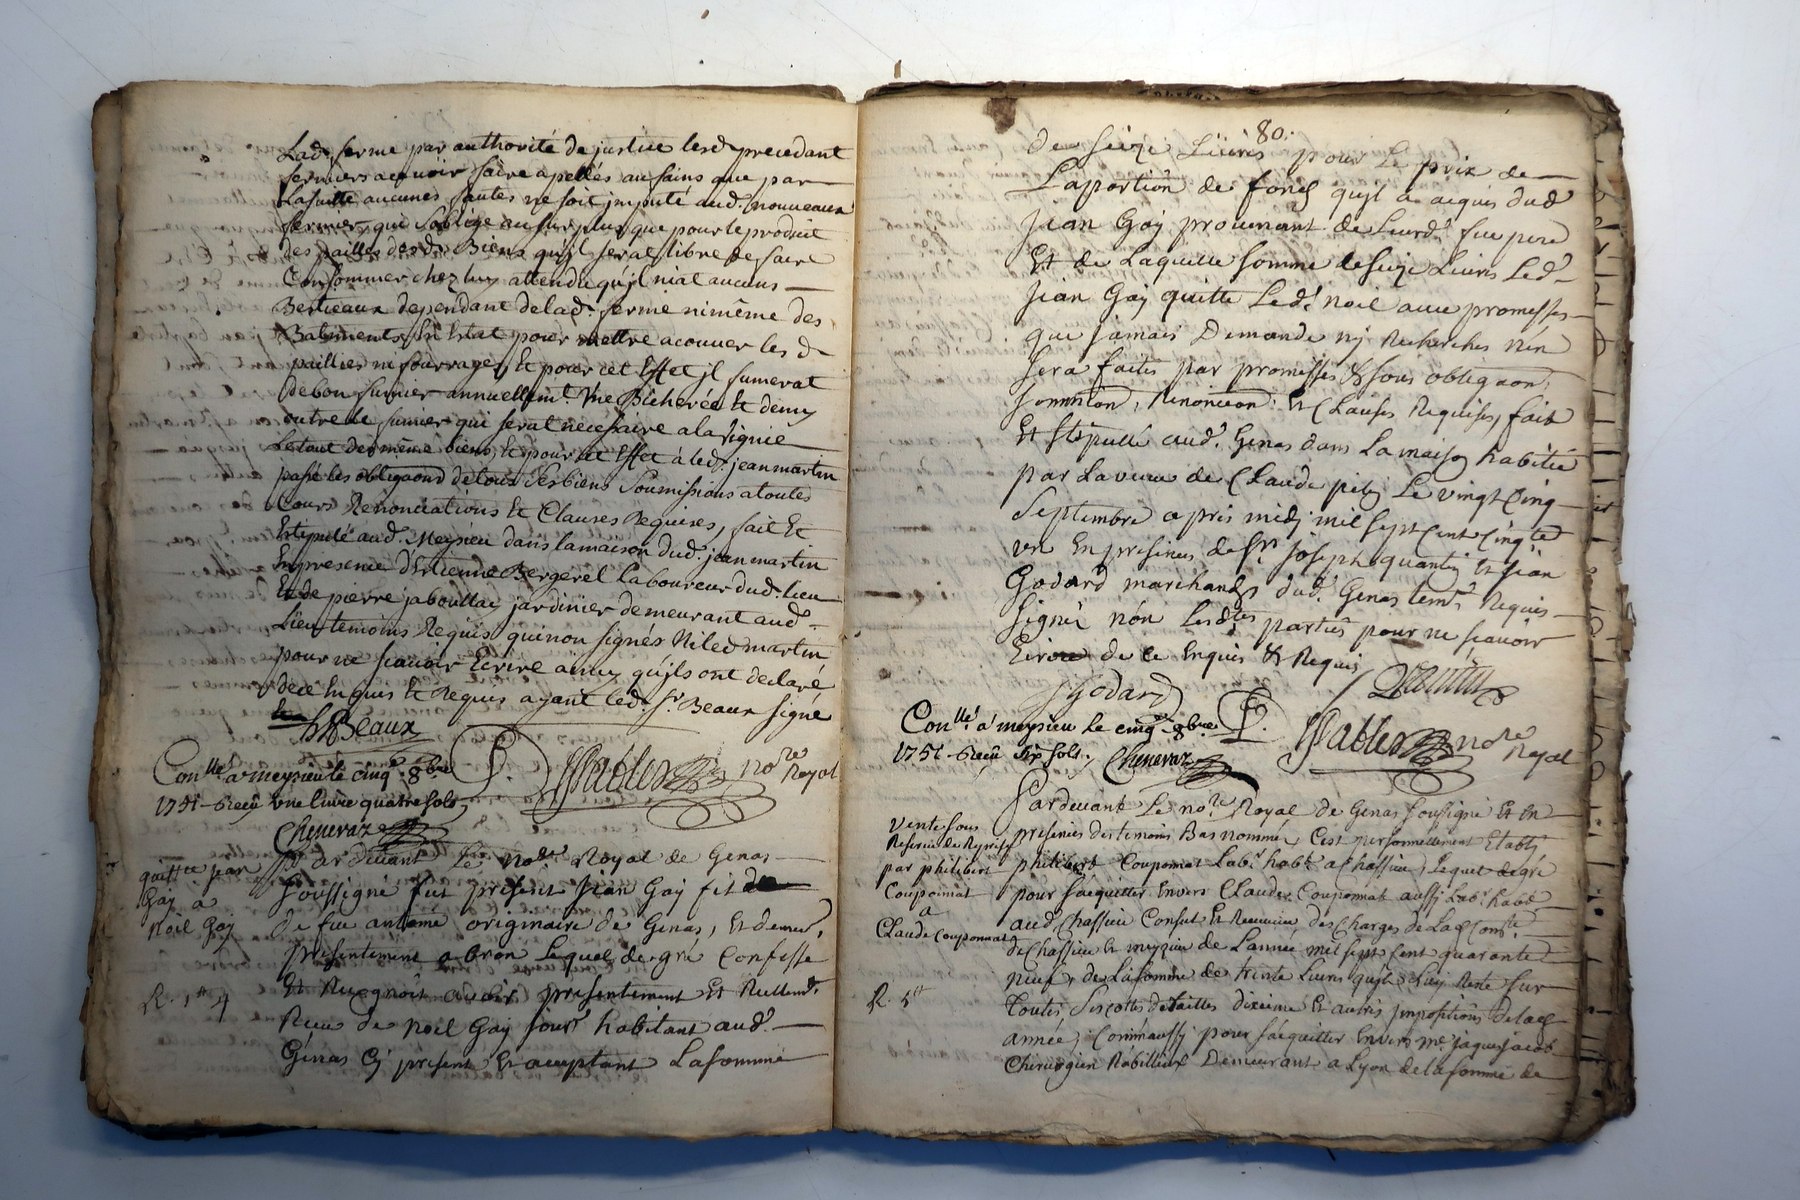 Lad. ferme par authorité de justice lesd precedant
fermiers a
Lasuitte aucunes fautes ne soit jmputé aud. nouveaux
fermier, qui soblige au surplus que pour le produit
des pailles desd. Biens qu'jl serat libre de faire
Consommer chez luy attendu qu'jl niat aucuns
Bestieaux dependant delad. ferme nimême des
Batiments En Estat pour mettre acouver les d
paillies ne fourrages, Et pour cet Effet jl fumerat
De bon fumier annuellemt. Vne Bicherée Et demy
outre le fumier qui serat nécessaire a la Vignie
Letout dermême biens, Et pour cet Effet à led. jean martin
passé les obligaons de tous Ses biens Soumissions a toutes
Cours Renonciations Et Clauses Requises, fait Et
Estipulé aud. Meysieu dans lamaison dud. jean martin
En presence d'Estienne Bergerel Laboureur dud. lieu
Et de pierre jaboullay jardinier demeurant aud.
Lieu temoins Requis qui non signés Ni led martin
pour ne scavoir Ecrire ainsy qu'jls ont declaré
dece Enquis Et Requis ayant led. Sr. Beaux signé
Beaux
Conllé a meysieu le cinq 8bre
1751 Receu vne livre quatre sols
Cheneraz
Pattier nore Royal
quitte jean
Gaÿ à
Noil Gaÿ
R. 1tt 4
Par devant Le Nore Royal de Genas
Soussigné fut present Jean Gaÿ fit
de feu antoine originaire de Genas, Et demeur.
presentement a bron Lequel de gré Confesse
Et Recognoit avoir presentement Et Reellemt.
Receu de Noil Gaÿ Jourr. habitant aud.
Génas Cy present Et aceptant La somme
80.
de Seize Livres pour Le prix de
Laportion de fond qujl a aquis dud
Jean Gaÿ provenant de Leurd. feu pere
Et de Laquelle somme de seize Livres Led.
Jean Gaÿ quitte Led. noil avec promesses
que jamais Demande nÿ Recherches n'en
Sera faites par promesses & sous obligaon,
Soumion, Renoncion. Et Clauses Requises, fait
Et Stipullé aud. Genas dans La maison habitée
par La veuve de Claude petiy Le vingt Cinq
Septembre apres midj mil Sept Cent Cinqte
un En presences de Sr. joseph quantin Et jean
Godard marchands dud. Genas temt Requis
Signé nôn Lesdtes parties pour ne scavoir
Ecrire de ce Enquis & Requis
Jgodard
Quantin
Conllé a meysieu le cinq 8bre
1751 Receu six sols. Cheneraz
Pattier nore Royal
Vente sous
par philibert
Couponnat
a
Claude Couponnat
R. 5tt
Pardevant Le nore Royal de Genas soussigné Et En
presences des temoins Bas nommé, C'est personnellement Etably
philibert Couponnat Labr. habt. a Chassieu, Lequel de gré
pour sacquitter Envers Claude Couponnat aussÿ Labr. habt
aud Chassieu Consul Et Receveur des Charges de Lad Comté.
de Chassieu Et meyzieu de Lannée mil sept Cent quarante
neuf, de La somme de trente Livres qujl Luÿ Reste sur
Toutes Ses cottes de tailles dixieme Et autres jmpositions de lad
année, Comm'aussÿ pour s'aquitter Envers me. jaque jacob
Chirurgien Rabilleur Demeurant a Lyon de la somme de